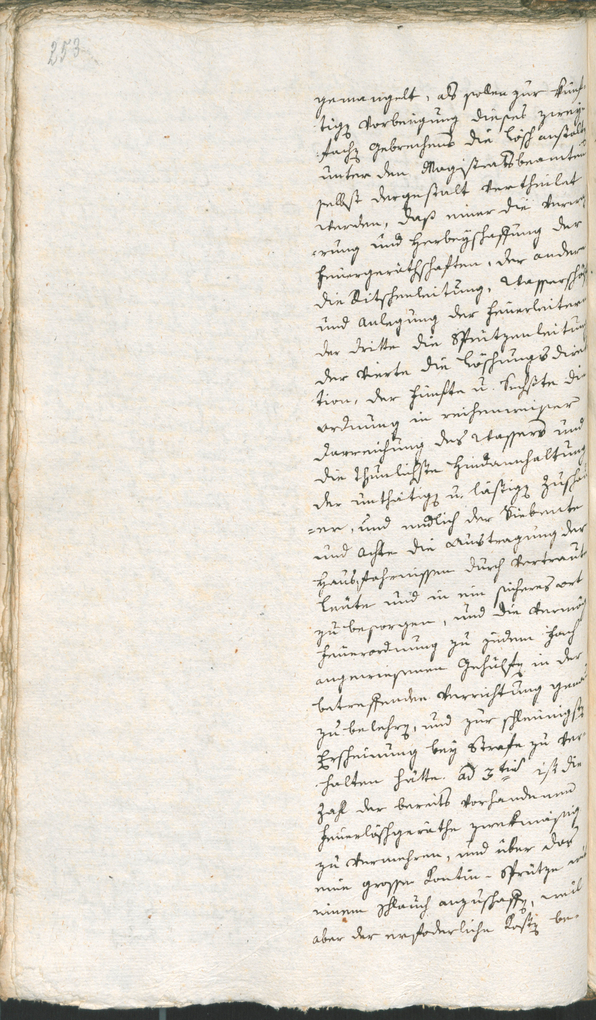 253
gemangelt, als sollen zur künf-
tigen Vorbeugung dieses zwey-
fachen Gebrechens die Löschanstalten
unter den Magistratsbeamten
selbst dergestalt vertheilet
werden, daß einer die
-rung und Herbeyschaffung der
Feuergeräthschaften, der andere
die Ritschenleitung, Wasserschö
und Anlegung der Feuerleitern
der dritte die Spritzenleitung
der Vierte die Löschungs Direc
tion, der fünfte u. Sechste die
Ordnung in reihenweiser
Darreichung des Wassers und
die thunlichste Hindannhaltung
der unthätigen u. lästigen Zuschau
-er, und endlich der Siebente
und Achte die Austragung der
Hausfahrnissen durch vertraute
Leute und in ein sicheres ort
zu besorgen, und die vermög
Feuerordnung zu jedem Fach
angewiesenen Gehülfen in der
betreffenden Verrichtung genau
zu belehren, und zur schleunigsten
Erscheinung bey Strafe zu ver-
halten hätte. ad 3tium ist die
Zahl der bereits vorhandenen
Feuerlöschgeräthe zwekmässig
zu vermehren, und über das
eine grosse Kontin-Sprütze mit
einem Schlauch anzuschaffen, weil
aber der erfoderliche Kosten be-